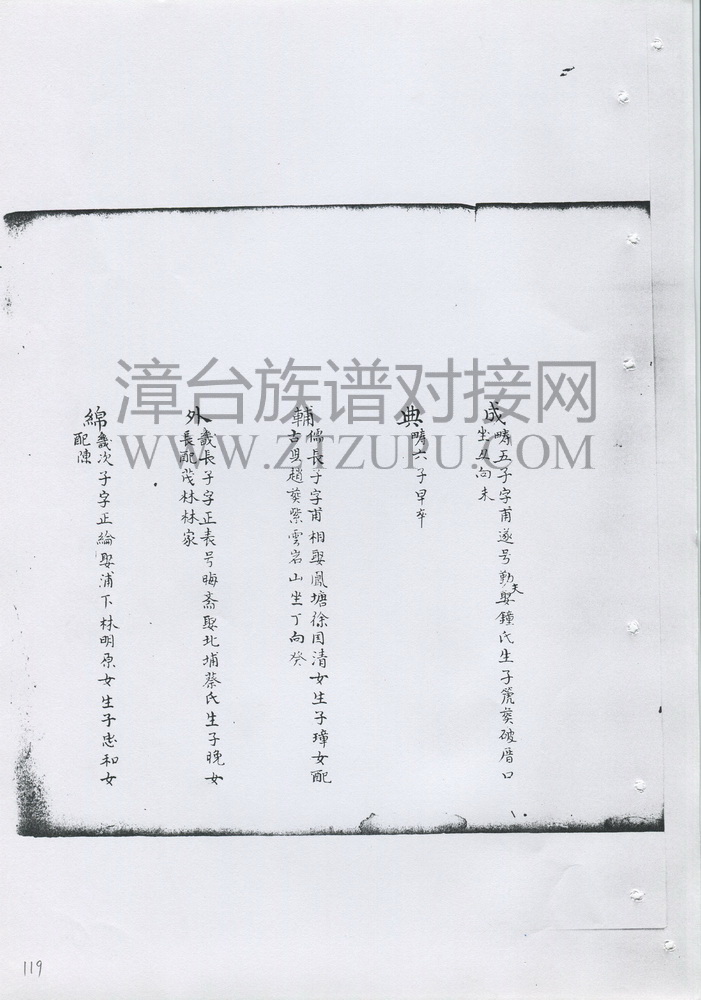 成
疇五子字甫遂号勤夫娶鐘氏生子篪葬破厝口
坐从向未
典
疇六子早卒
輔
儒長子字甫相娶鳳塘徐国清女生子璋女配
古县趙葬紫雲岩山坐丁向癸
外
畿長子字正表号晦斋娶北埔蔡氏生子晚女
長配茂林林家
綿
畿次子字正綸娶浦下林明原女生子忠和女
配陳
漳台族谱对接网
WWW.ZTZUPU.COM
119